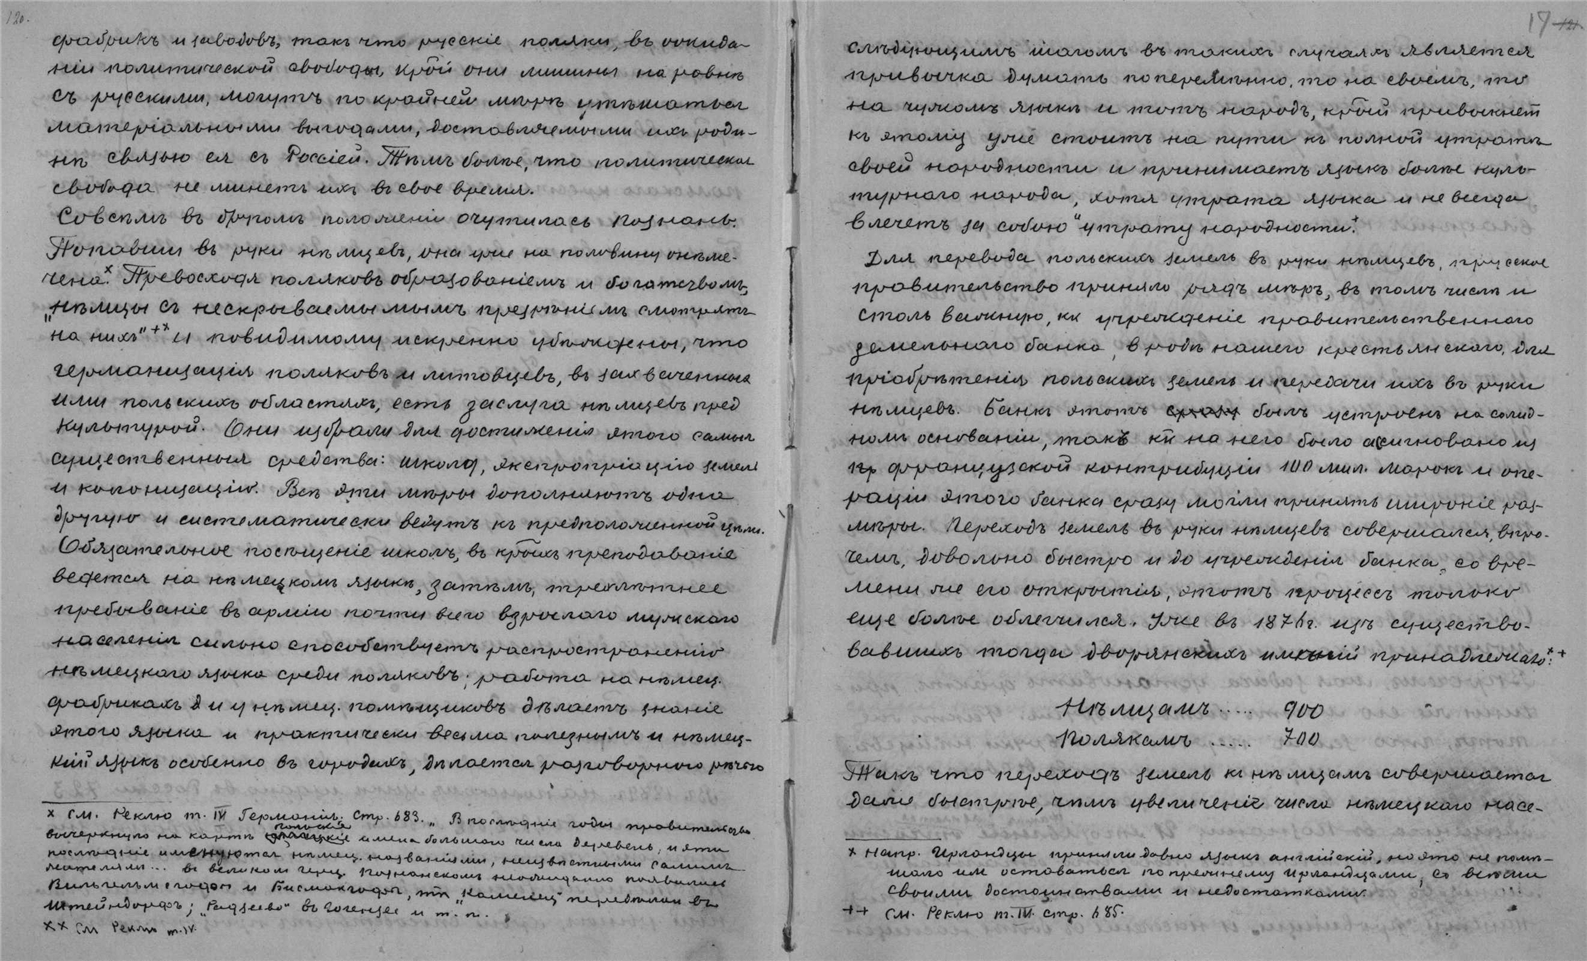 120.
фабрикъ и заводовъ, такъ что русскіе поляки, въ ожида-
ніи политической свободы, крой они лишены на ровнѣ
съ русскими, могутъ по крайней мѣрѣ утѣшаться
матеріальными выгодами, доставляемыми ихъ роди-
нѣ связью ея съ Россіей. Тѣмъ болѣе, что политическая
свобода не минетъ ихъ въ свое время.
Совсѣмъ въ другомъ положеніи очутилась Познань.
Попавши въ руки нѣмцевъ, она уже на половину онѣме-
чена.× Превосходя поляковъ образованіемъ и богатствомъ,
„нѣмцы съ нескрываемымымъ презрѣніемъ смотрятъ
на нихъ"+× и повидимому искренно убѣждены, что
германизація поляковъ и литовцевъ, въ захваченныхъ
ими польскихъ областяхъ, есть заслуга нѣмцевъ пред
культурой. Они избрали для достиженія этого самыя
существенныя средства: школу, экспропріацію земель
и колонизацію. Всѣ эти мѣры дополняютъ одна
другую и систематически ведутъ къ предположенной цѣли.
Обязательное посѣщеніе школъ, въ кроихъ преподаваніе
ведется на нѣмецкомъ языкѣ, затѣмъ, трехлѣтнее
пребываніе въ арміи почти всего взрослаго мужскаго
населенія сильно способствуетъ распространенію
нѣмецкаго языка среди поляковъ; работа на нѣмец.
фабрикахъ и у нѣмец. помѣщиковъ дѣлаетъ знаніе
этого языка и практически весьма полезнымъ и нѣмец-
кій языкъ особенно въ городахъ, дѣлается разговорною рѣчью
× См. Реклю т. IV Германія. стр. 683. „В послѣдніе годы правительство
вычеркнуло на картѣ польскіе имена большаго числа деревень, и эти
послѣдніе именуются нѣмец. названіями, неизвѣстными самимъ
жителямъ... въ великомъ герц. Познанскомъ неожиданно появились
Вильгельмсгофы и Бисмаркгофы, „Каменец" передѣланъ въ
Штейндорфъ; „Радзеево" въ и т. п.
×× См Реклю т. IV.
17
слѣдующимъ шагомъ въ такихъ случаяхъ является
привычка думать поперемѣнно, то на своемъ, то
на чужомъ языкѣ и тотъ народъ, крый привыкнетъ
къ этому уже стоитъ на пути къ полной утратѣ
своей народности и принимаетъ языкъ болѣе куль-
турнаго народа, хотя утрата языка и не всегда
влечетъ за собою утрату народности.×
Для перевода польскихъ земель въ руки нѣмцевъ, прусское
правительство приняло рядъ мѣръ, въ томъ числѣ и
столь важную, кк учрежденіе правительственнаго
земельнаго банка, в родѣ нашего крестьянскаго, для
пріобрѣтенія польскихъ земель и передачи ихъ въ руки
нѣмцевъ. Банкъ этотъ былъ устроенъ на солид-
номъ основаніи, такъ кк на него было асигновано из
пр. французской контрибуціи 100 мил. марокъ и опе-
раціи этого банка сразу могли принять широкіе раз-
мѣры. Переходъ земель въ руки нѣмцевъ совершался, впро-
чемъ, довольно быстро и до учрежденія банка, со вре-
мени же его открытія, этотъ процессъ только
еще болѣе облегчился. Уже въ 1876 г. изъ существо-
вавшихъ тогда дворянскихъ имѣній принадлежало:++
Нѣмцамъ ..... 900
Полякамъ ..... 700
Такъ что переходъ земель къ нѣмцамъ совершается
даже быстрѣе, чѣмъ увеличеніе числа нѣмецкаго насе-
× Напр. Ирландцы приняли давно языкъ англійскій, но это не помѣ-
шало им оставаться попрежнему ирландцами, со всѣми
своими достоинствами и недостатками.
++ См. Реклю т. IV. стр. 685.